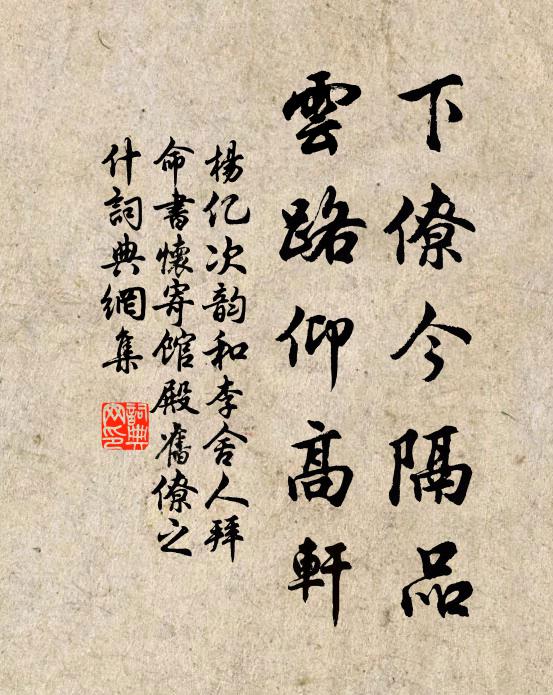 下僚今隔品
雲路仰高軒
楊亿次韵和李舍人拜
命書懷寄館殿舊僚之
什詞典網集
詞典网印